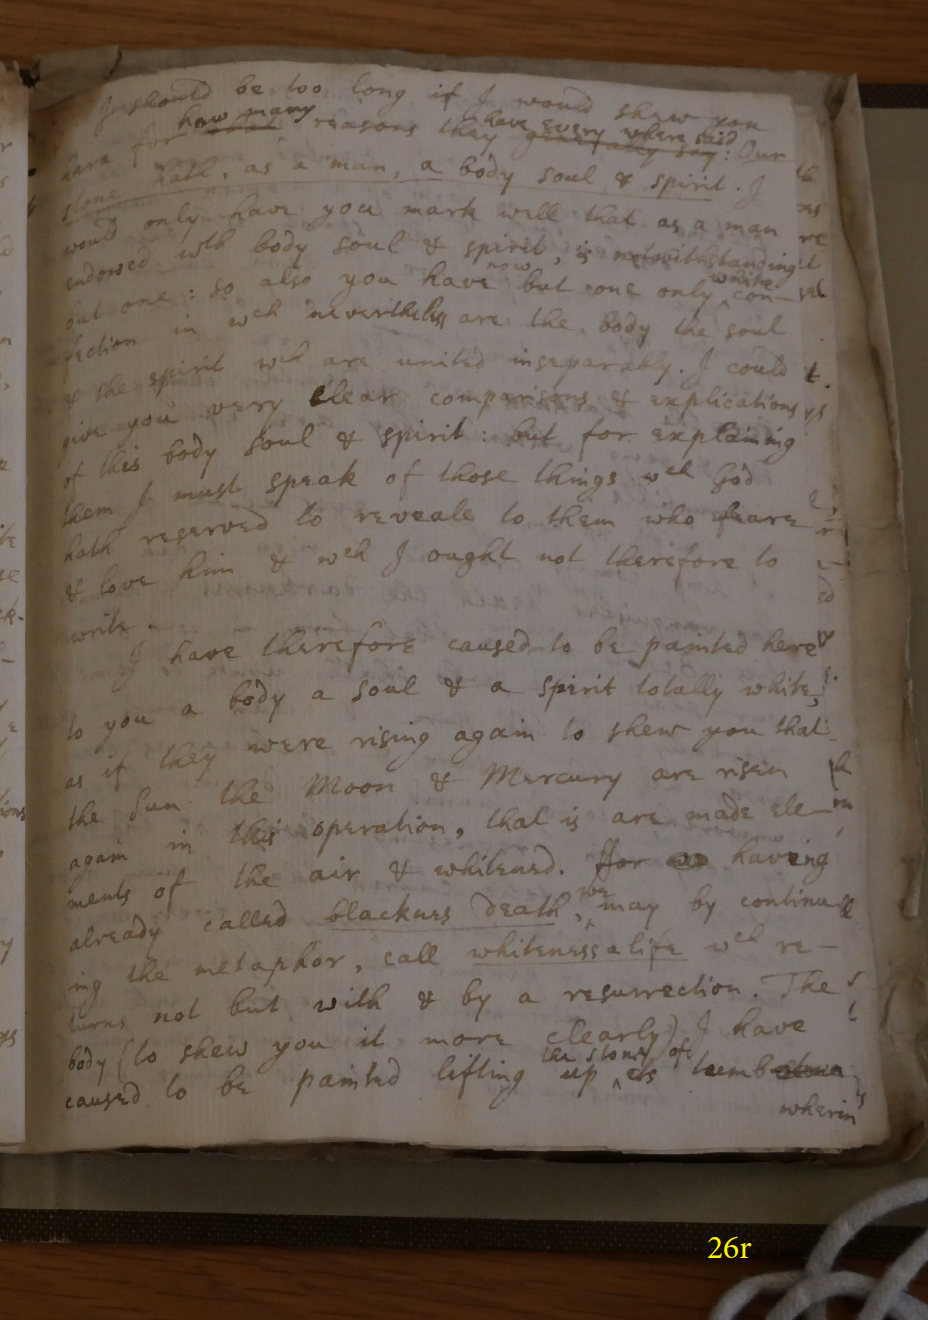 I should be too long if I would shew you
here for how many reasons they have every where said generally say: Our
stone hath, as a man, a body soul & spirit. I
would only have you mark well that as a man
endowed wth body soul & spirit, is notwithstanding
but one: so also you have now but one only white con-
fection in wch nevertheless are the body the soul
& the spirit wch are united inseparably. I could
give you very clear comparisons & explications
of this body soul & spirit: but for explaining
them I must speak of those things wch God
hath reserved to reveale to them who feare
& love him & wch I ought not therefore to
write.
I have therefore caused to be painted here
to you a body a soul & a spirit totally white,
as if they were rising again to shew you that
the Sun the Moon & Mercury are risen
again in this operation, that is are made ele-
ments of the air & whitened. ffor having
already called blacknes death, we may by continu
ing the metaphor, call whiteness a life wch re-
turns not but with & by a resurrection. The
body (to shew you it more clearly) I have
caused to be painted lifting up the stone of its tumb
wherin
26r